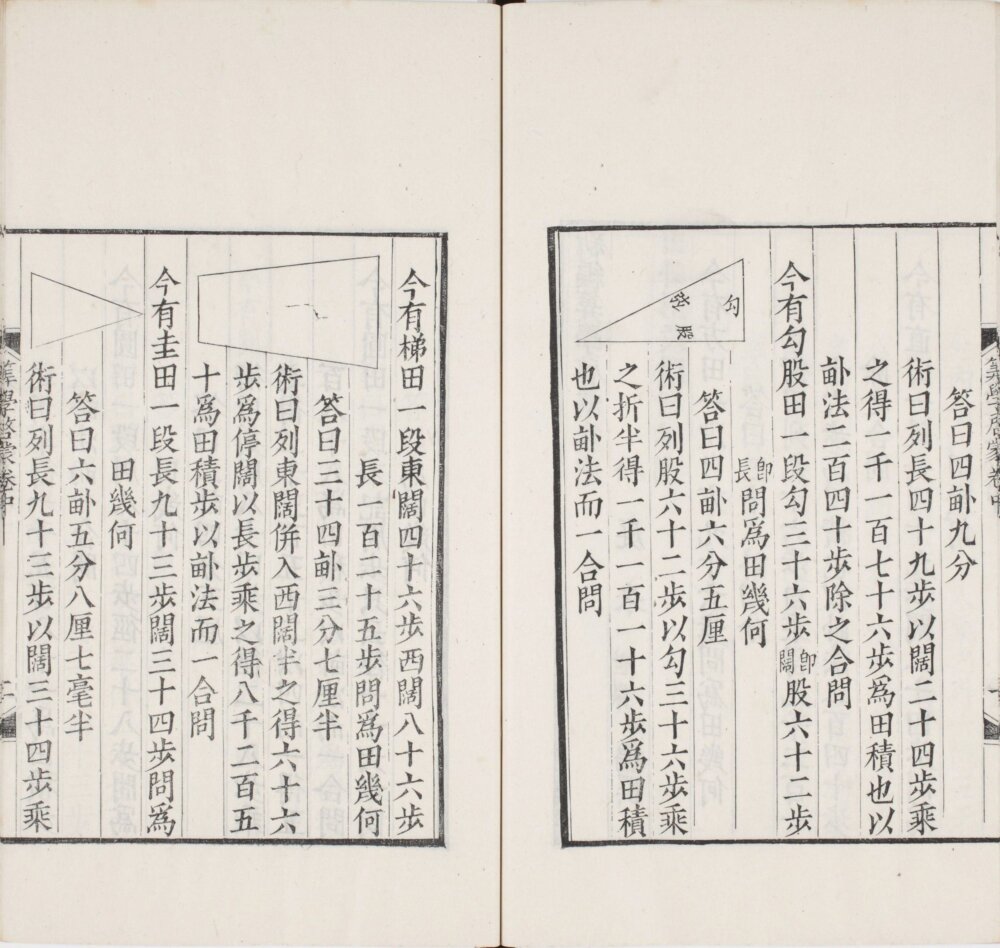 答曰四畝九分
術曰列長四十九步以闊二十四步乘
之得一千一百七十六步爲田積也以
畝法二百四十步除之合問
今有勾股田一段勾三十六步卽闊股六十二步
卽長問爲田幾何
勾
弦
股
答曰四畝六分五厘
術曰列股六十二步以勾三十六步乘
之折半得一千一百一十六步爲田積
也以畝法而一合問
今有梯田一段東闊四十六步西闊八十六步
長一百二十五步問爲田幾何
答曰三十四畝三分七厘半
術曰列東闊併入西闊半之得六十六
步爲停闊以長步乘之得八千二百五
十爲田積步以畝法而一合問
今有圭田一段長九十三步闊三十四步問爲
田幾何
答曰六畝五分八厘七毫半
術曰列長九十三步以闊三十四步乘
算學啓蒙卷中